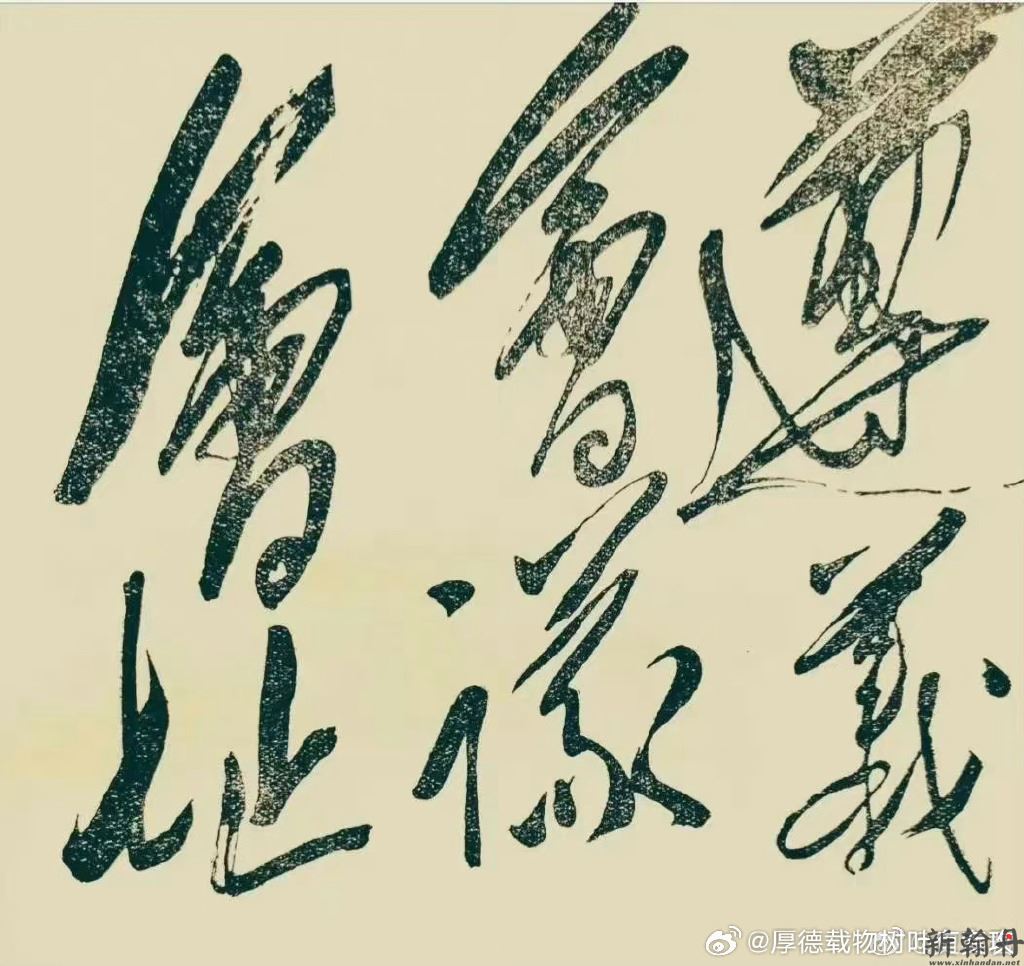 遵義
會議
會址
@厚德载物树
新翰丹
www.xinhandan.net